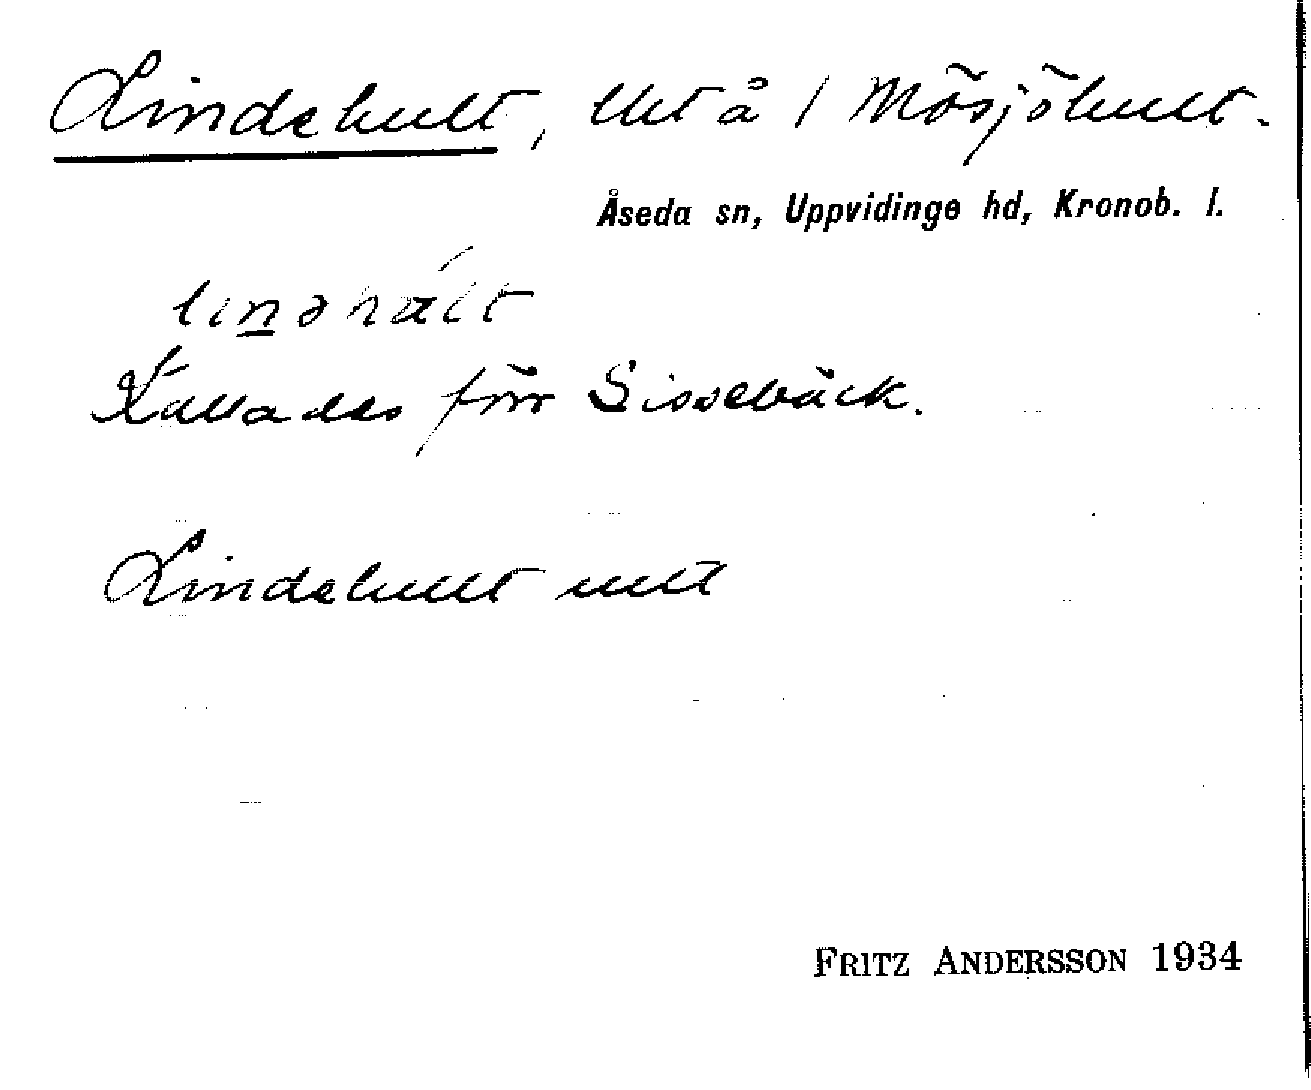 Lindehult, lht å 1 Mösjöhult.
Åseda sn, Uppvidinge hd, Kronob. l.
Kallades förr Sissebäck.
Lindehult
FRITZ ANDERSSON 1934